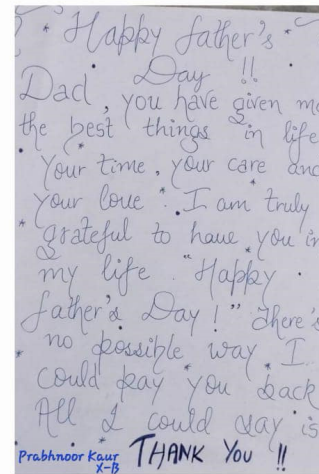 Happy father's
Day !!
Dad, you have given me
the best things in life
your time, your care and
your love. I am truly
grateful to have you in
my life. "Happy
father's Day!" There's
no possible way I
could pay you back
All I could say is
THANK YOU !!
Prabhnoor Kaur
X-B